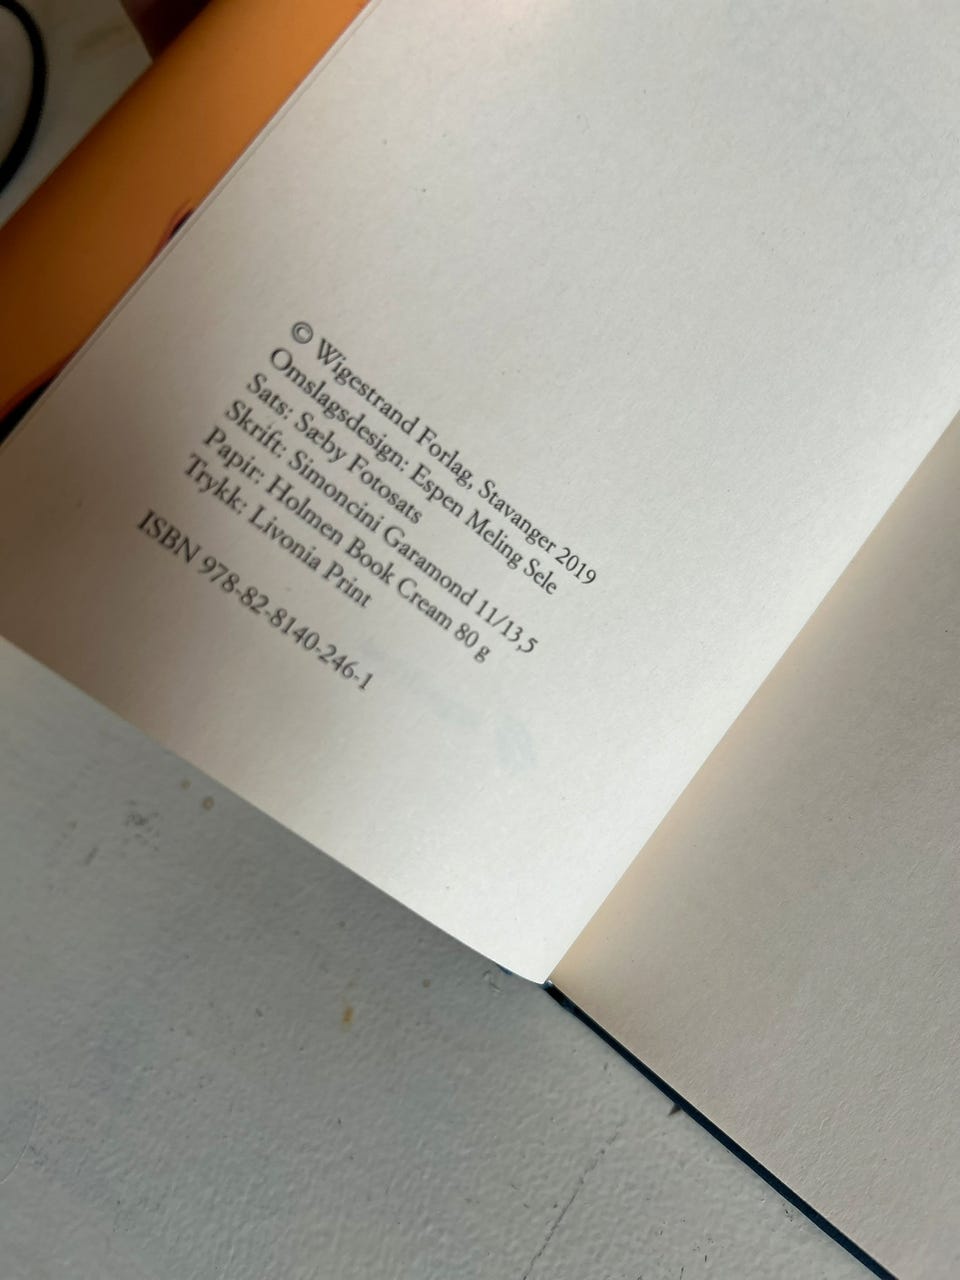 © Wigestrand Forlag, Stavanger 2019
Omslagsdesign: Espen Meling Sele
Sats: Sæby Fotosats
Skrift: Simoncini Garamond 11/13,5
Papir: Holmen Book Cream 80 g
Trykk: Livonia Print
ISBN 978-82-8140-246-1